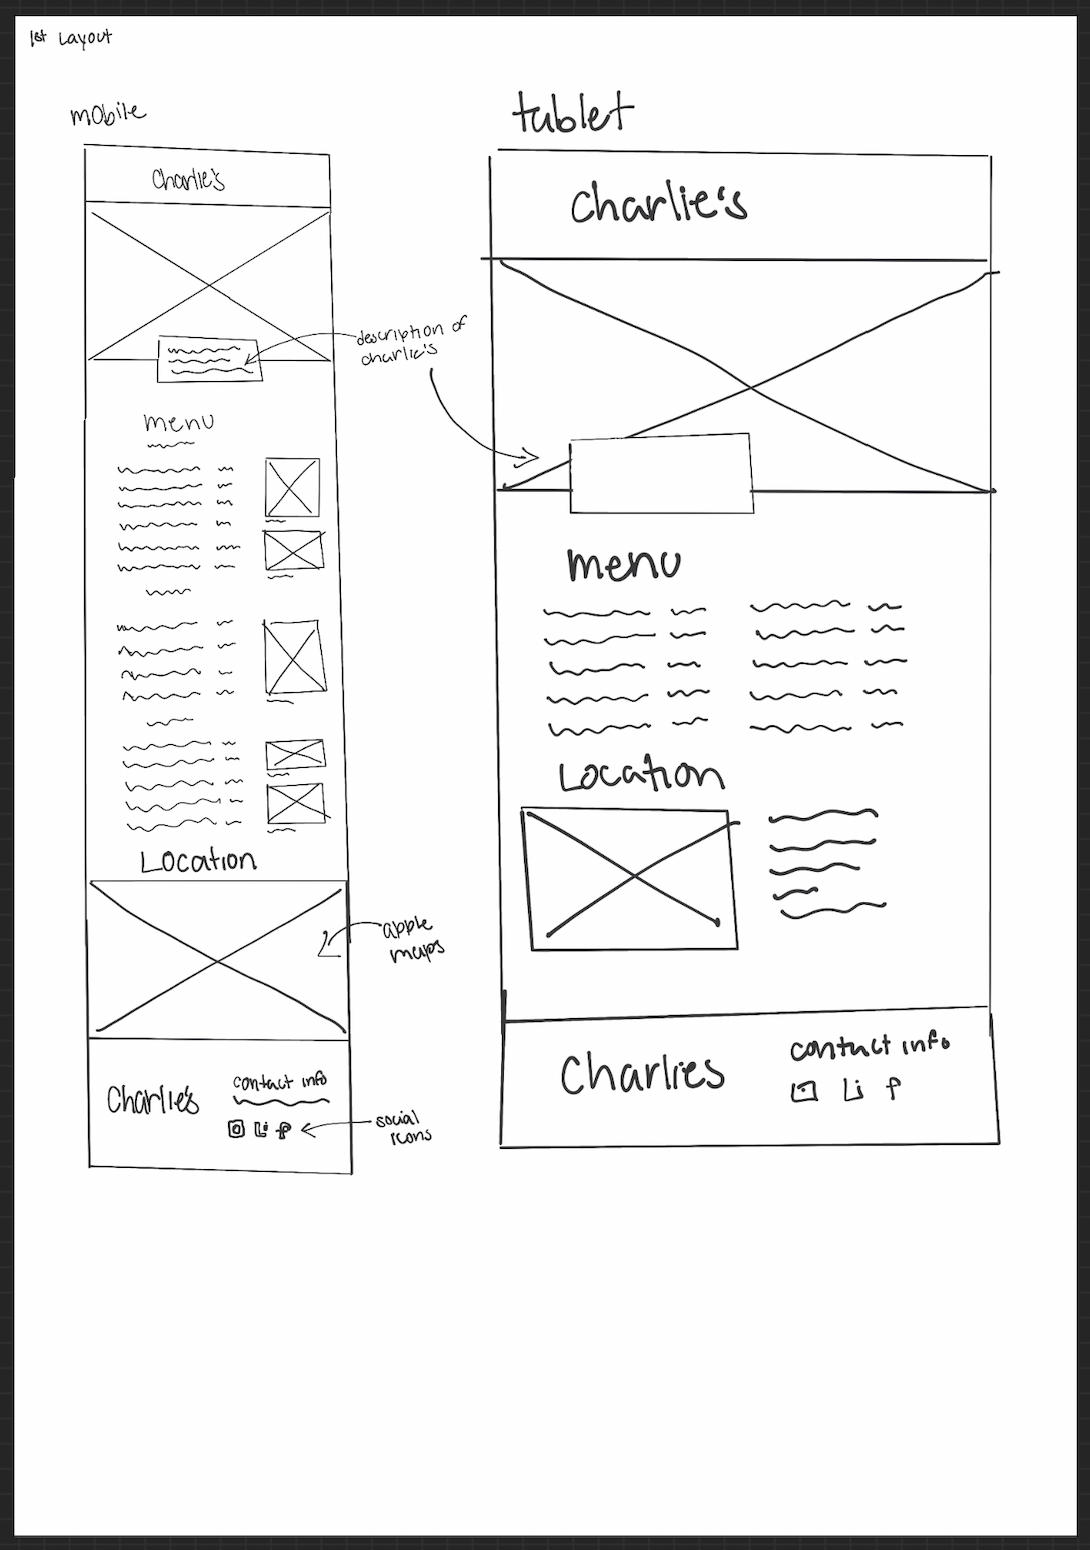 1st Layout
mobile
Charlie's
description of
charlie's
menu
Location
apple
maps
Charlie's
contact info
Li f
social
icons
tablet
Charlie's
menu
Location
Charlies
contact info
Li f